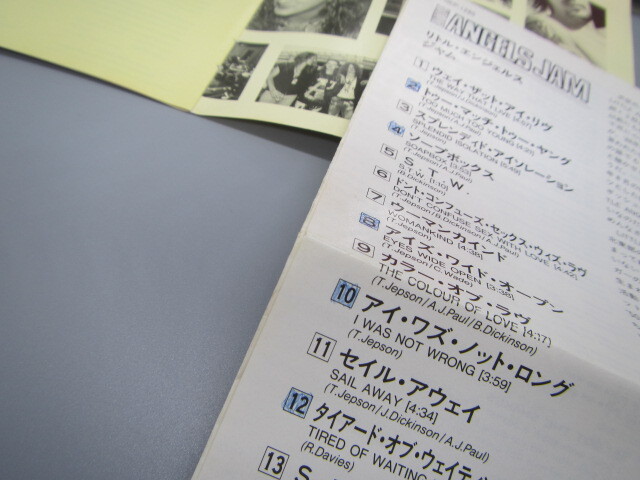 ANGELS JAM
リトル・エンジェルス
ジャム
1 ウェイ・ザット・アイ・リヴ
THE WAY THAT I LIVE
2 トゥー・マッチ・トゥー・ヤング
TOO MUCH TOO YOUNG
3 スプレンディド・アイソレーション
SPLENDID ISOLATION
(T.Jepson)
4 ソープボックス
SOAPBOX
(T.Jepson/A.J.Paul)
5 S.T.W.
S.T.W.
(B.Dickinson)
6 ドント・コンフューズ・セックス・ウィズ・ラヴ
DON'T CONFUSE SEX WITH LOVE
(T.Jepson/B.Dickinson/A.J.Paul)
7 ウーマンカインド
WOMANKIND [4:36]
(T.Jepson)
8 アイズ・ワイド・オープン
EYES WIDE OPEN [3:36]
(T.Jepson/C.Wade)
9 カラー・オブ・ラヴ
THE COLOUR OF LOVE [4:17]
(T.Jepson/A.J.Paul/B.Dickinson)
10 アイ・ワズ・ノット・ロング
I WAS NOT WRONG [3:59]
(T.Jepson)
11 セイル・アウェイ
SAIL AWAY [4:34]
(T.Jepson/J.Dickinson/A.J.Paul)
12 タイアード・オブ・ウェイティ
TIRED OF WAITING
(R.Davies)
13 S